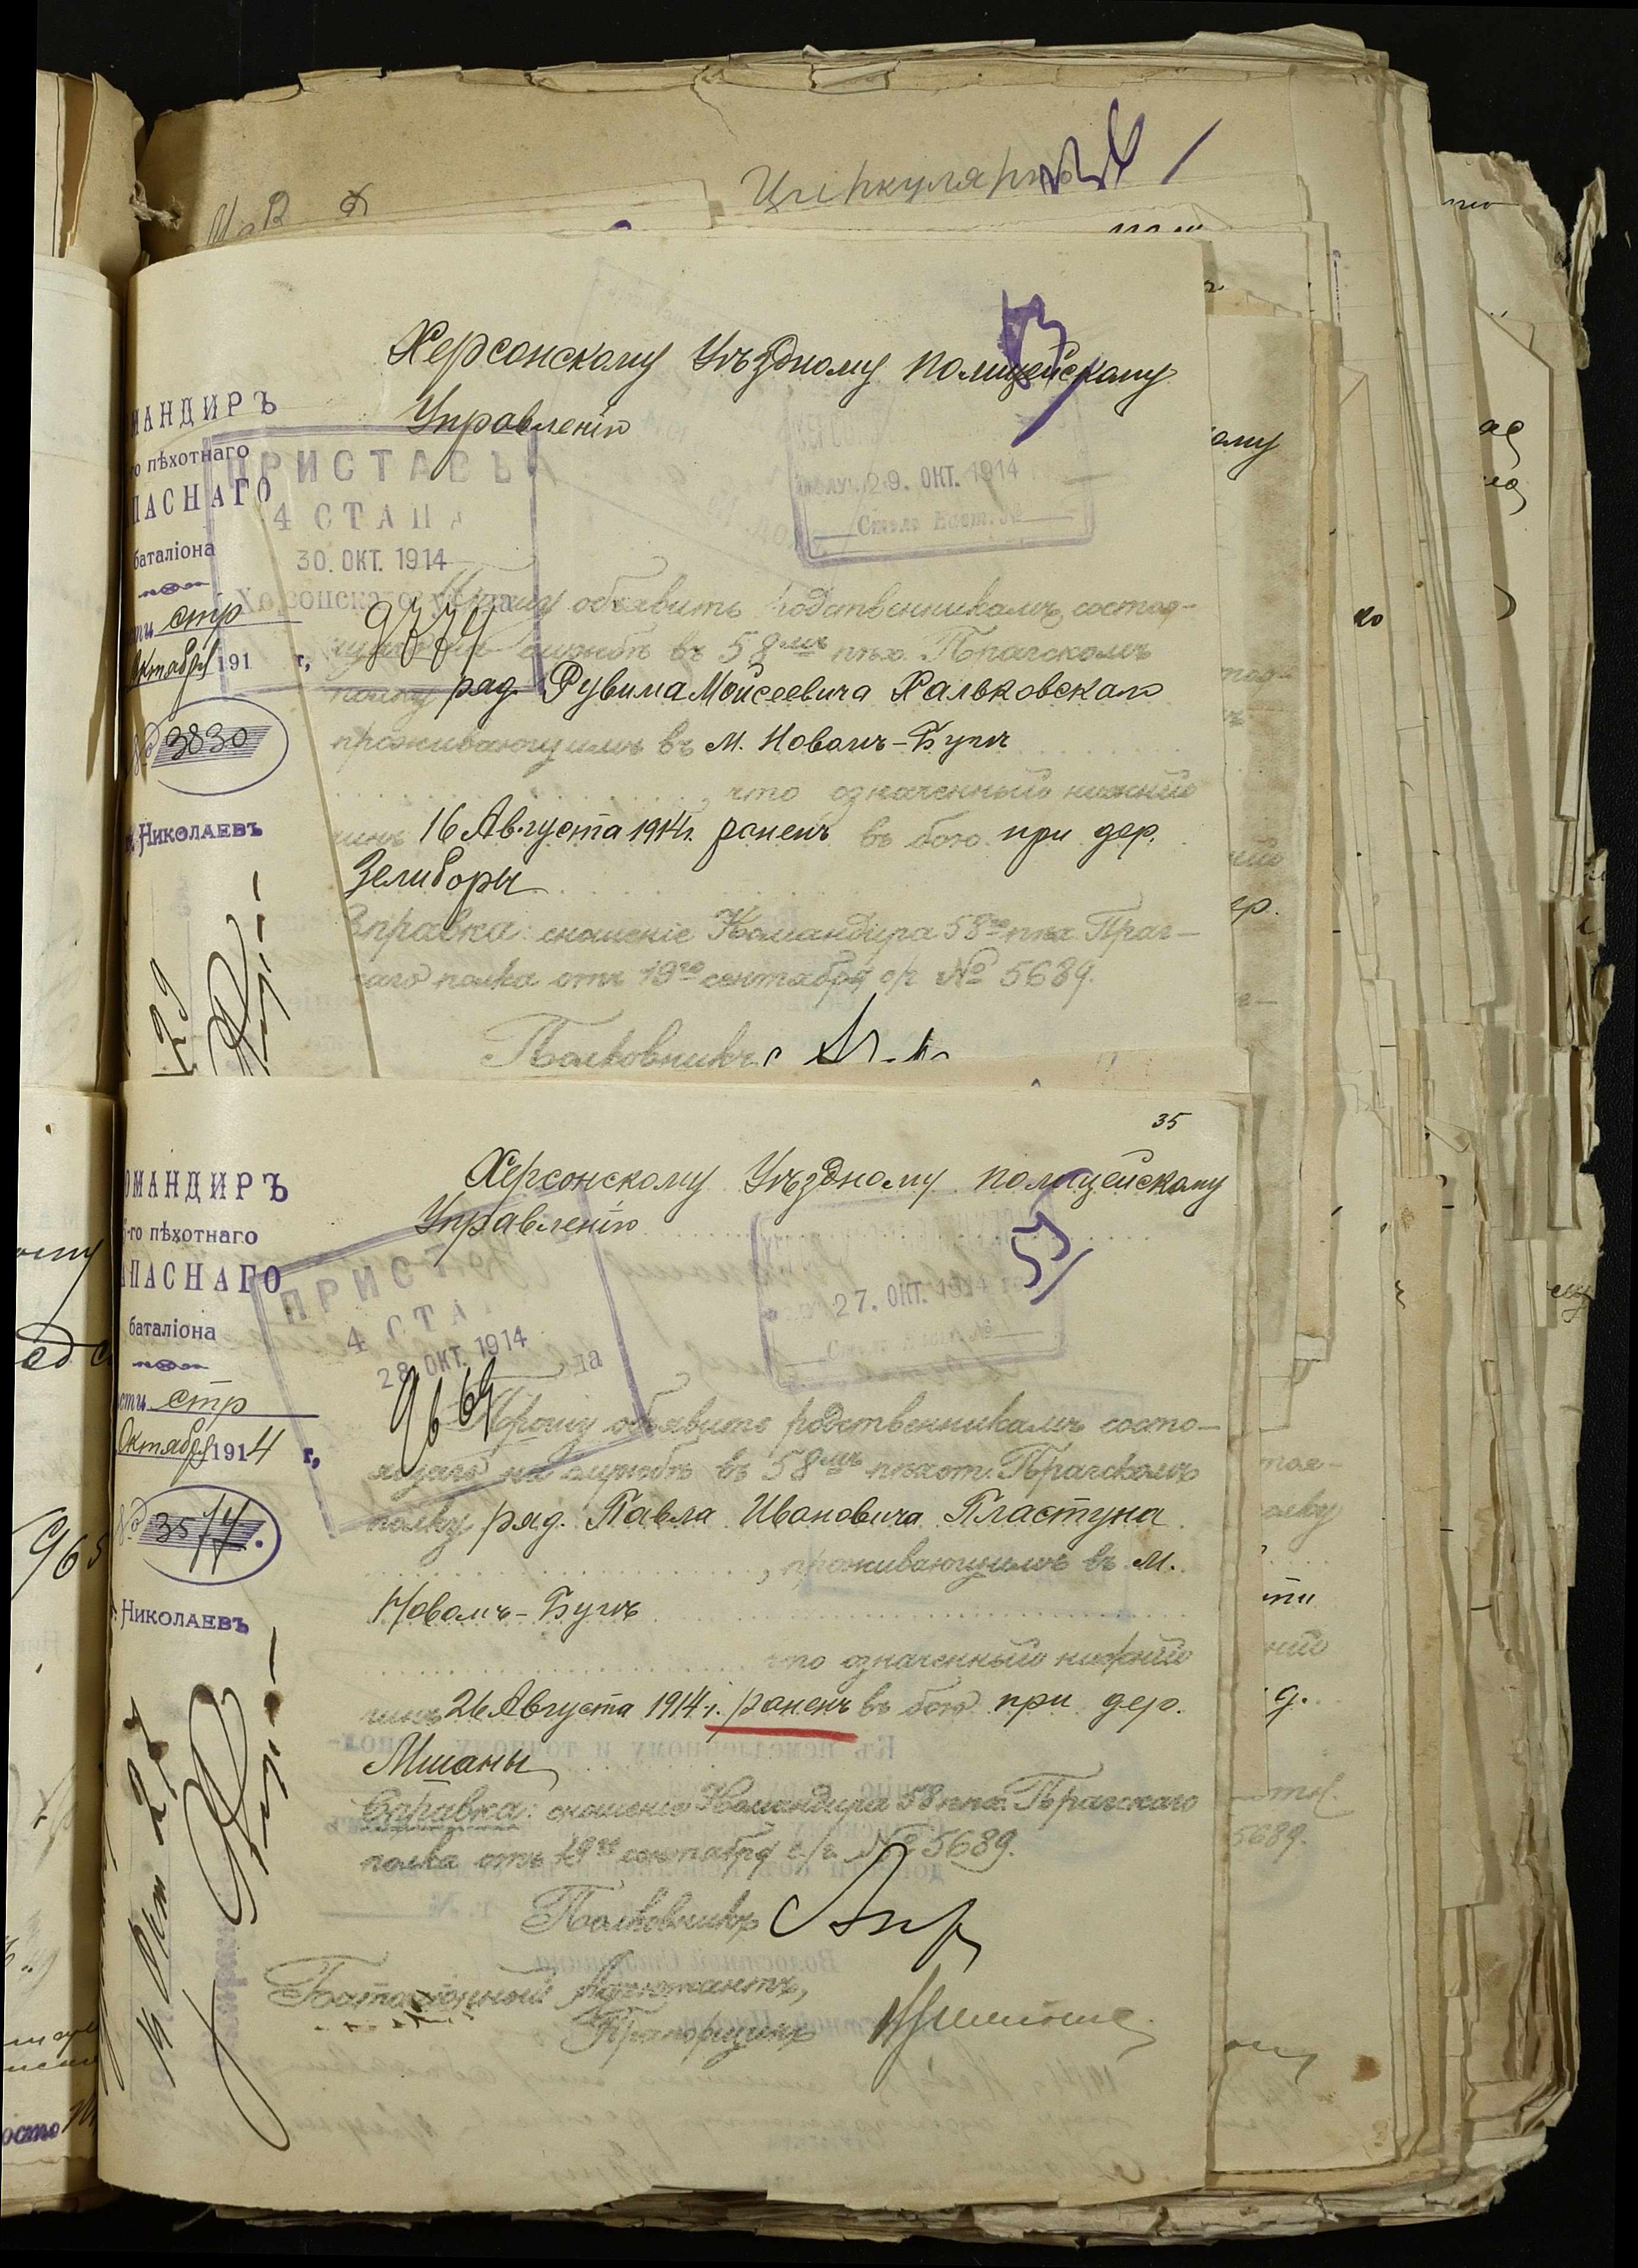 Циркулярно
Херсонскому Уѣздному полицейскому
Управленію
МАНДИРЪ
го пѣхотнаго
ПАСНАГО
баталіона
сти стр
Октября 191 г.
№ 3830
г. Николаевъ
ПРИСТАВЪ
4 СТАНА
30. ОКТ. 1914
Херсонскаго уѣзда
9779
29. ОКТ. 1914
Столъ Наст. №
Прошу объявить родственникамъ состоя-
щаго на службѣ въ 58мъ пѣх. Прагскомъ
полку ряд. Рувима Мойсеевича Хальковскаго
проживающимъ въ м. Новомъ-Бугѣ
, что означенный нижній
чинъ 16 Августа 1914 г. раненъ въ бою при дер.
Зелиборы
Справка: сношеніе Командира 58го пѣх. Праг-
скаго полка отъ 19го сентября с/г №5689.
Полковникъ
35
Херсонскому Уѣздному полицейскому
Управленію
ОМАНДИРЪ
-го пѣхотнаго
АПАСНАГО
баталіона
сти стр
Октября 1914 г.
№ 3577.
г. Николаевъ
ПРИСТ
4 СТА
28 ОКТ. 1914
9664
27. ОКТ. 1914
Прошу объявить родственникамъ состо-
ящаго на службѣ въ 58мъ пѣхот. Прагскомъ
полку ряд. Павла Ивановича Пластуна
, проживающимъ въ м.
Новомъ-Бугѣ
что означенный нижній
чинъ 26 Августа 1914 г. раненъ въ бою при дер.
Мшаны
Справка: сношеніе Командира 58 пѣх. Прагскаго
полка отъ 19го сентября с/г. №5689.
Полковникъ
Баталіонный Адъютантъ,
Прапорщикъ